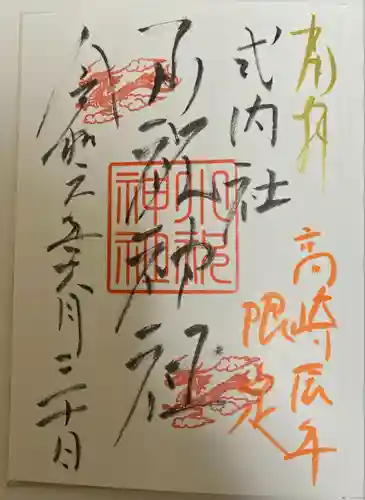 奉拝
高崎辰年
限定
式内社
小祝神社
小祝
神社
令和六年六月三十日